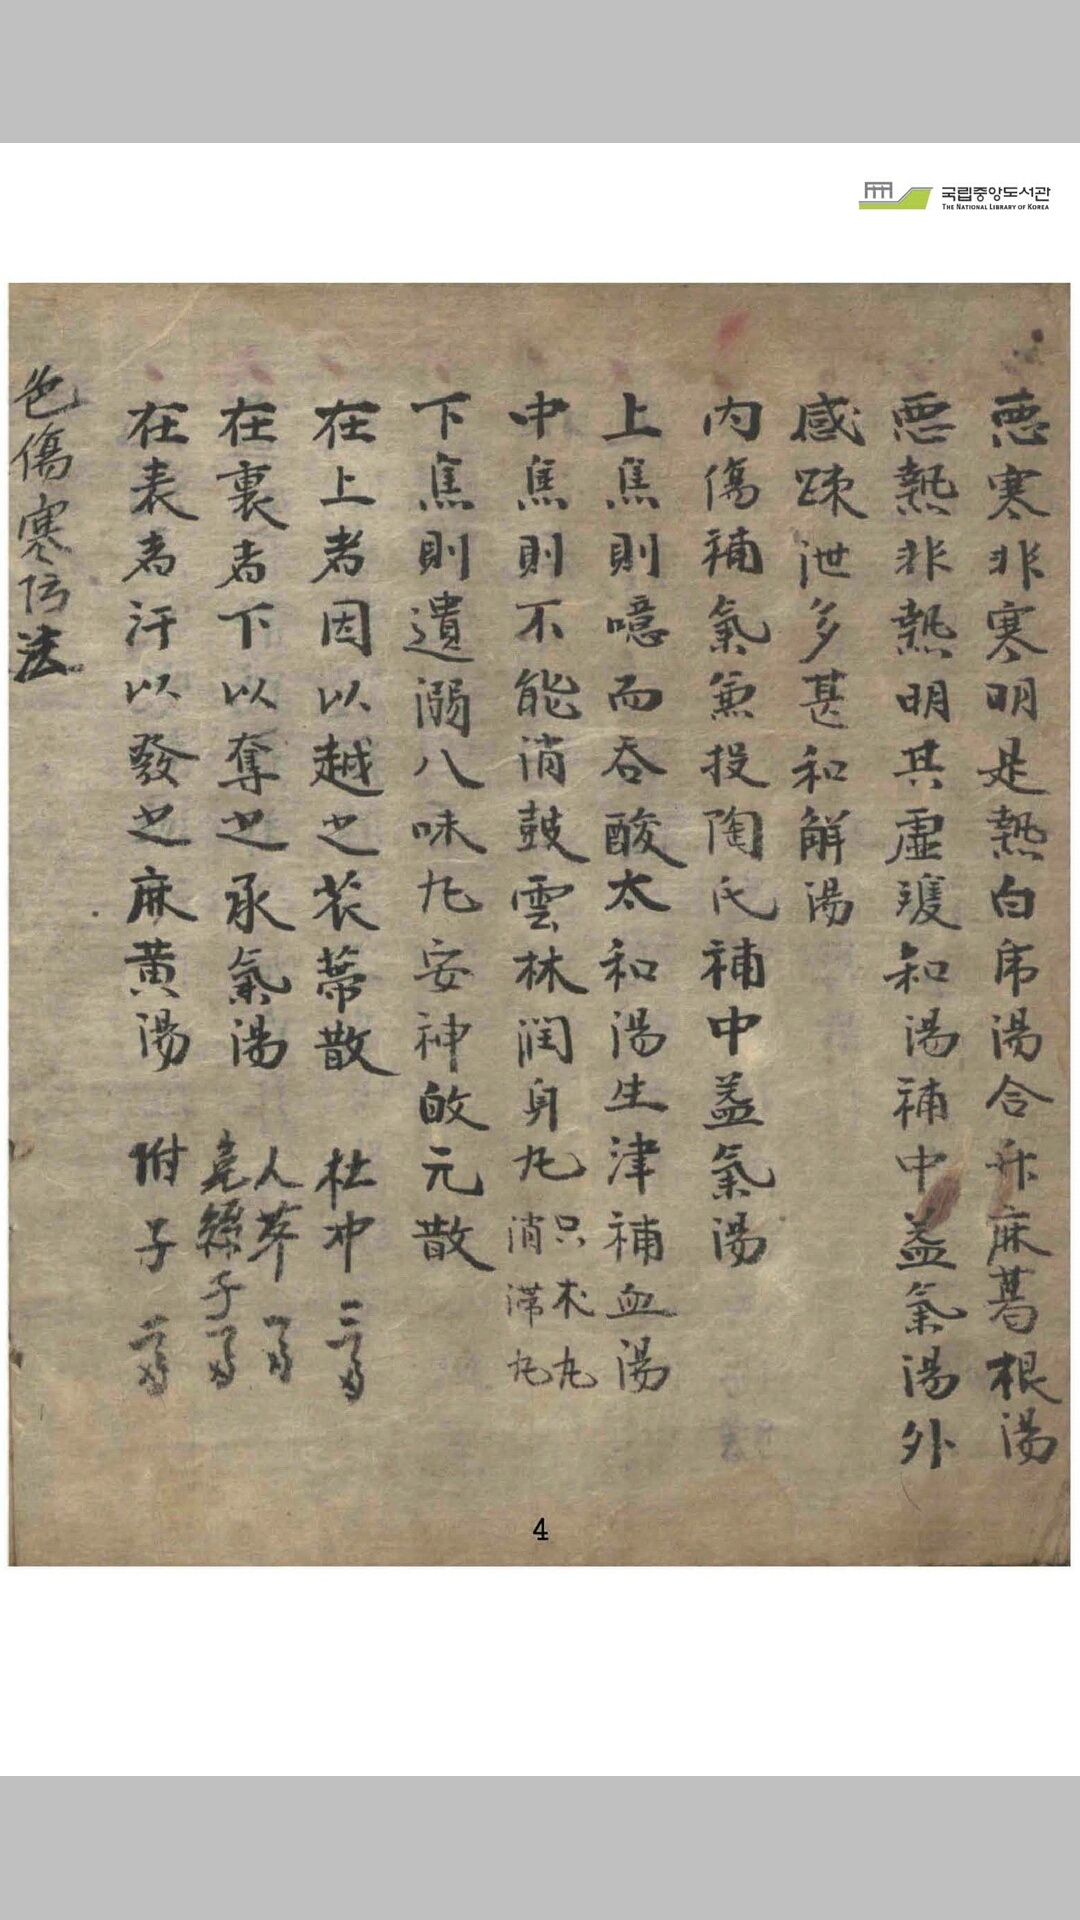 국립중앙도서관
THE NATIONAL LIBRARY OF KOREA
惡寒非寒明是熱白虎湯合升麻葛根湯
惡熱非熱明其虛雙和湯補中益氣湯外
感踈泄多甚和解湯
內傷補氣兼投陶氏補中益氣湯
上焦則噫而吞酸太和湯生津補血湯
中焦則不能消鼓雲林潤身丸只朮丸消滯丸
下焦則遺溺八味丸安神啟元散
在上者因以越之苽蒂散 杜冲 三戔
在裏者下以奪之承氣湯 人莽 一戔 兎絲子 一戔
在表者汗以發之麻黃湯 附子 一戔
色傷寒 法
4